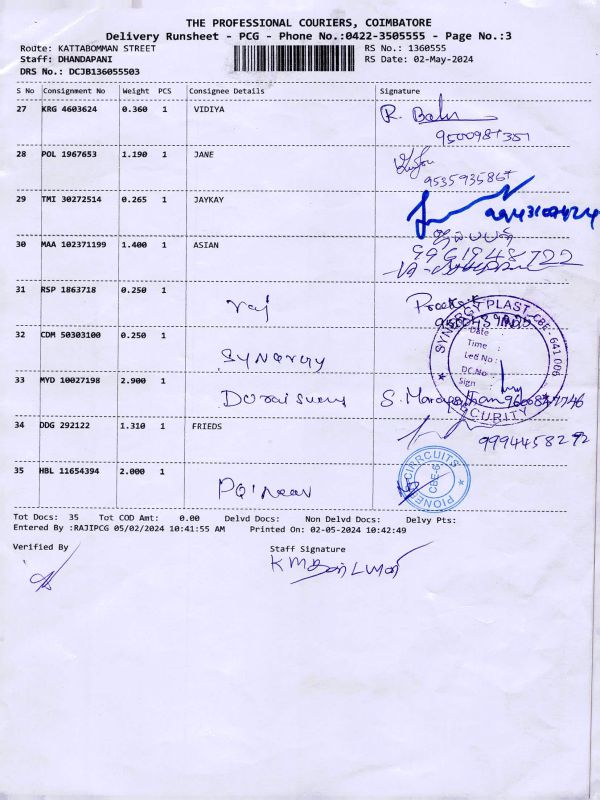 THE PROFESSIONAL COURIERS, COIMBATORE
Delivery Runsheet - PCG - Phone No.:0422-3505555 - Page No.:3
Route: KATTABOMMAN STREET RS No.: 1360555
Staff: DHANDAPANI RS Date: 02-May-2024
DRS No.: DCJB136055503
S No Consignment No Weight PCS Consignee Details Signature
27 KRG 4603624 0.360 1 VIDIYA R.
28 POL 1967653 1.190 1 JANE
29 TMI 30272514 0.265 1 JAYKAY
30 MAA 102371199 1.400 1 ASIAN
31 RSP 1863718 0.250 1 raj
32 CDM 50303100 0.250 1 SYNergy
SYNERGY PLAST CBE - 641 006
Date
Time :
Led No :
DC.No :
Sign :
SECURITY
33 MYD 10027198 2.900 1 Durai Swamy S.
34 DDG 292122 1.310 1 FRIEDS 9994458272
35 HBL 11654394 2.000 1
CIRRCUITS CBE-6
Tot Docs: 35 Tot COD Amt: 0.00 Delvd Docs: Non Delvd Docs: Delvy Pts:
Entered By :RAJIPCG 05/02/2024 10:41:55 AM Printed On: 02-05-2024 10:42:49
Verified By Staff Signature